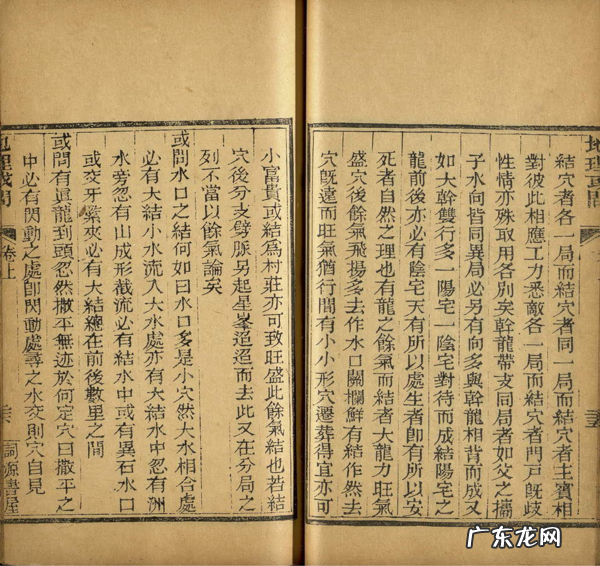 地理或問
結穴者各一局而結穴者同一局而結穴者主賓相
對彼此相應工力悉敵各一局而結穴者門戸既歧
性情亦殊取用各別矣幹龍帶支同局者如父之攜
子水向皆同異局必另有向多與幹龍相背而成又
如大幹雙行多一陽宅一陰宅對待而成結陽宅之
龍前後亦必有陰宅天有所以處生者卽有所以安
死者自然之理也有龍之餘氣而結者大龍力旺氣
盛穴後餘氣飛揚多去作水口關攔鮮有結作然去
穴旣遠而旺氣猶行間有小小形穴遷葬得宜亦可
小富貴或結爲村莊亦可致旺盛此餘氣結也若結
穴後分支劈脈另起星峯迢迢而去此又在分局之
列不當以餘氣論矣
或問水口之結何如曰水口多是小穴然大水相合處
必有大結小水流入大水處亦有大結水中忽有洲
水旁忽有山成形截流必有結水中或有異石水口
或交牙緊夾必有大結總在前後數里之間
或問有眞龍到頭忽然撒平無迹於何定穴曰撒平之
中必有閃動之處卽閃動處尋之水交則穴自見
地理或問
卷上
詞源書屋
广东龙网